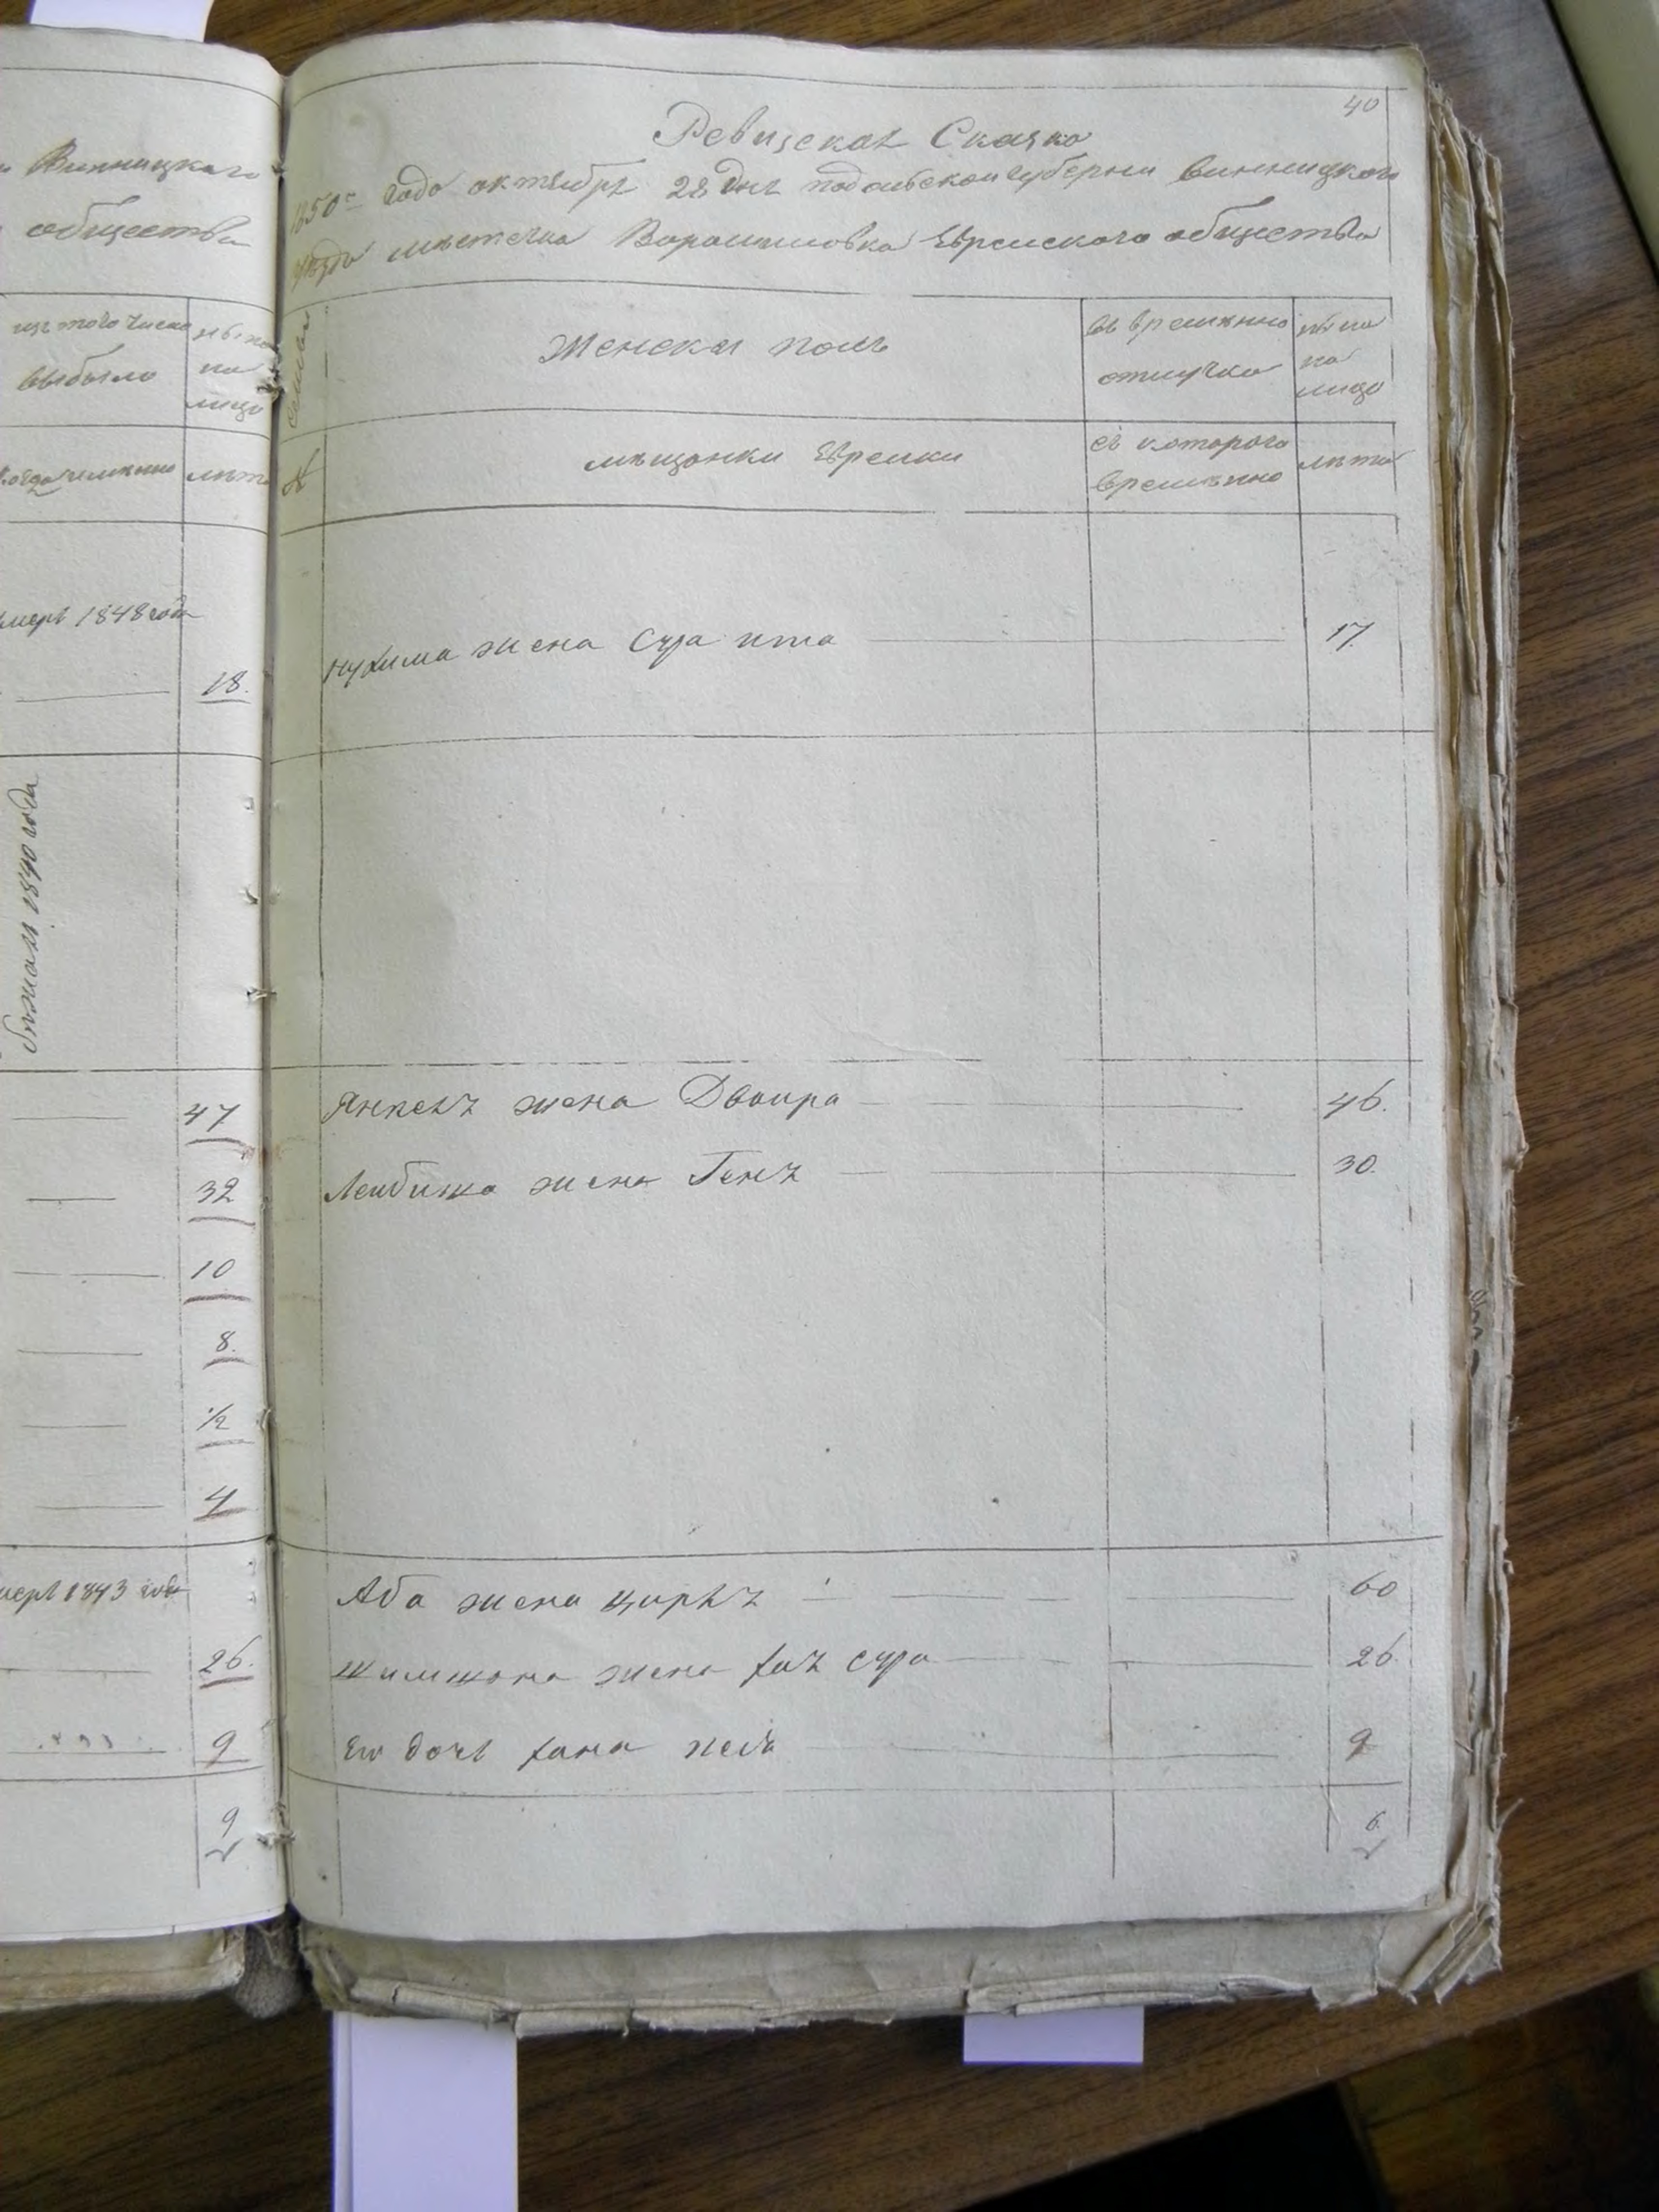 Винницкаго
общества
изъ того числа
выбыло
ныне
на
лицо
когда именно
лета
умеръ 1848 года
18.
бежалъ 1840 года
47
32
10
8.
1/2
4
умеръ 1843 года
26.
9
9
40
Ревизская Сказка
1850го года октября 28 дня подольской губернии винницкого
уезда местечка Вороншовка Еврейского общества
Семьи
Женска полъ
въ временно
отлучке
ныне
на
лицо
№
мещонки Еврейки
съ которого
временно
лета
нухима жена Сура ита 17.
Янкелъ жена Двоира 46.
Лейбиша жена Генъ 30.
Аба жена циреъ 60
Шимшона жена хаъ сура 26.
Его дочь хана 9
6